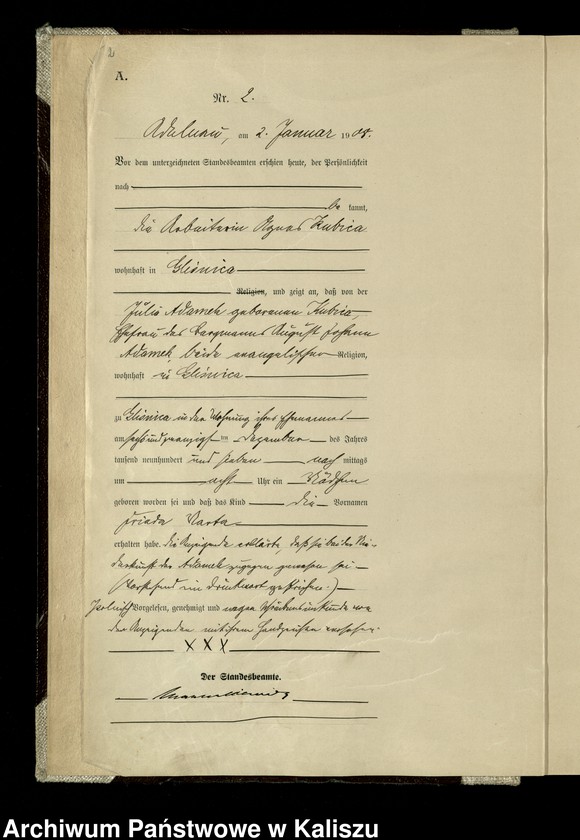 2
A.
Nr. 2.
Adelnau, am 2. Januar 1908.
Vor dem unterzeichneten Standesbeamten erschien heute, der Persönlichkeit
nach
be kannt,
die Arbeiterin Agnes Kubica
wohnhaft in Glisnica
Religion, und zeigt an, daß von der
Julie Adamek geborenen Kubica,
Ehefrau des Bergmanns August Johann
Adamek, beide evangelischer Religion,
wohnhaft in Glisnica
zu Glisnica in der Wohnung ihres Ehemannes
am sechsundzwanzigsten Dezember des Jahres
tausend neunhundert und sieben nach mittags
um acht Uhr ein Mädchen
geboren worden sei und daß das Kind die Vornamen
Frieda Marta
erhalten habe. Die Anzeigende erklärte, daß sie bei der Nie-
derkunft der Adamek zugegen gewesen sei
(Vorstehend ein Druckwort gestrichen.)
Polnisch Vorgelesen, genehmigt und wegen Schreibensunkunde von
der Anzeigenden mit ihrem Handzeichen versehen.
XXX
Der Standesbeamte.
Archiwum Państwowe w Kaliszu